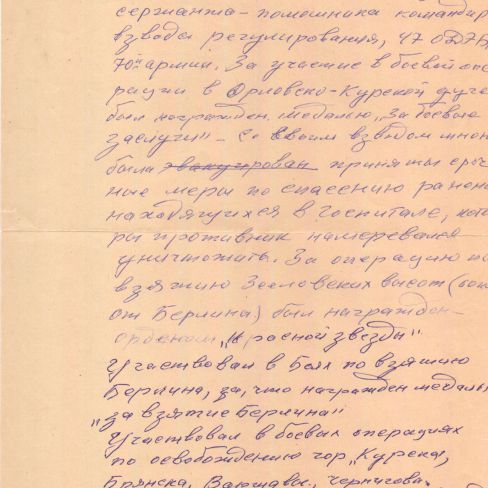 сержанта - помошника командир
взвода регулирования, 47 ОДЭ
70й армии. За участие в боевой опе
рации в Орловско-Курской дуге
был награжден медалью „За боевые
заслуги" - Со своим взводом мною
была эвакуирован приняты сроч
ные меры по спасению ранен
находящихся в госпитале, кото
ры противник намеревался
уничтожить. За операцию по
взятию Зееловских высот (
от Берлина) был награжден-
орденом „Красной звезды"
Участвовал в боях по взятию
Берлина, за, что награжден медаль
„за взятие Берлина"
Участвовал в боевых операциях
по освобождению гор „Курска,
Брянска, Варшавы, Чернигова